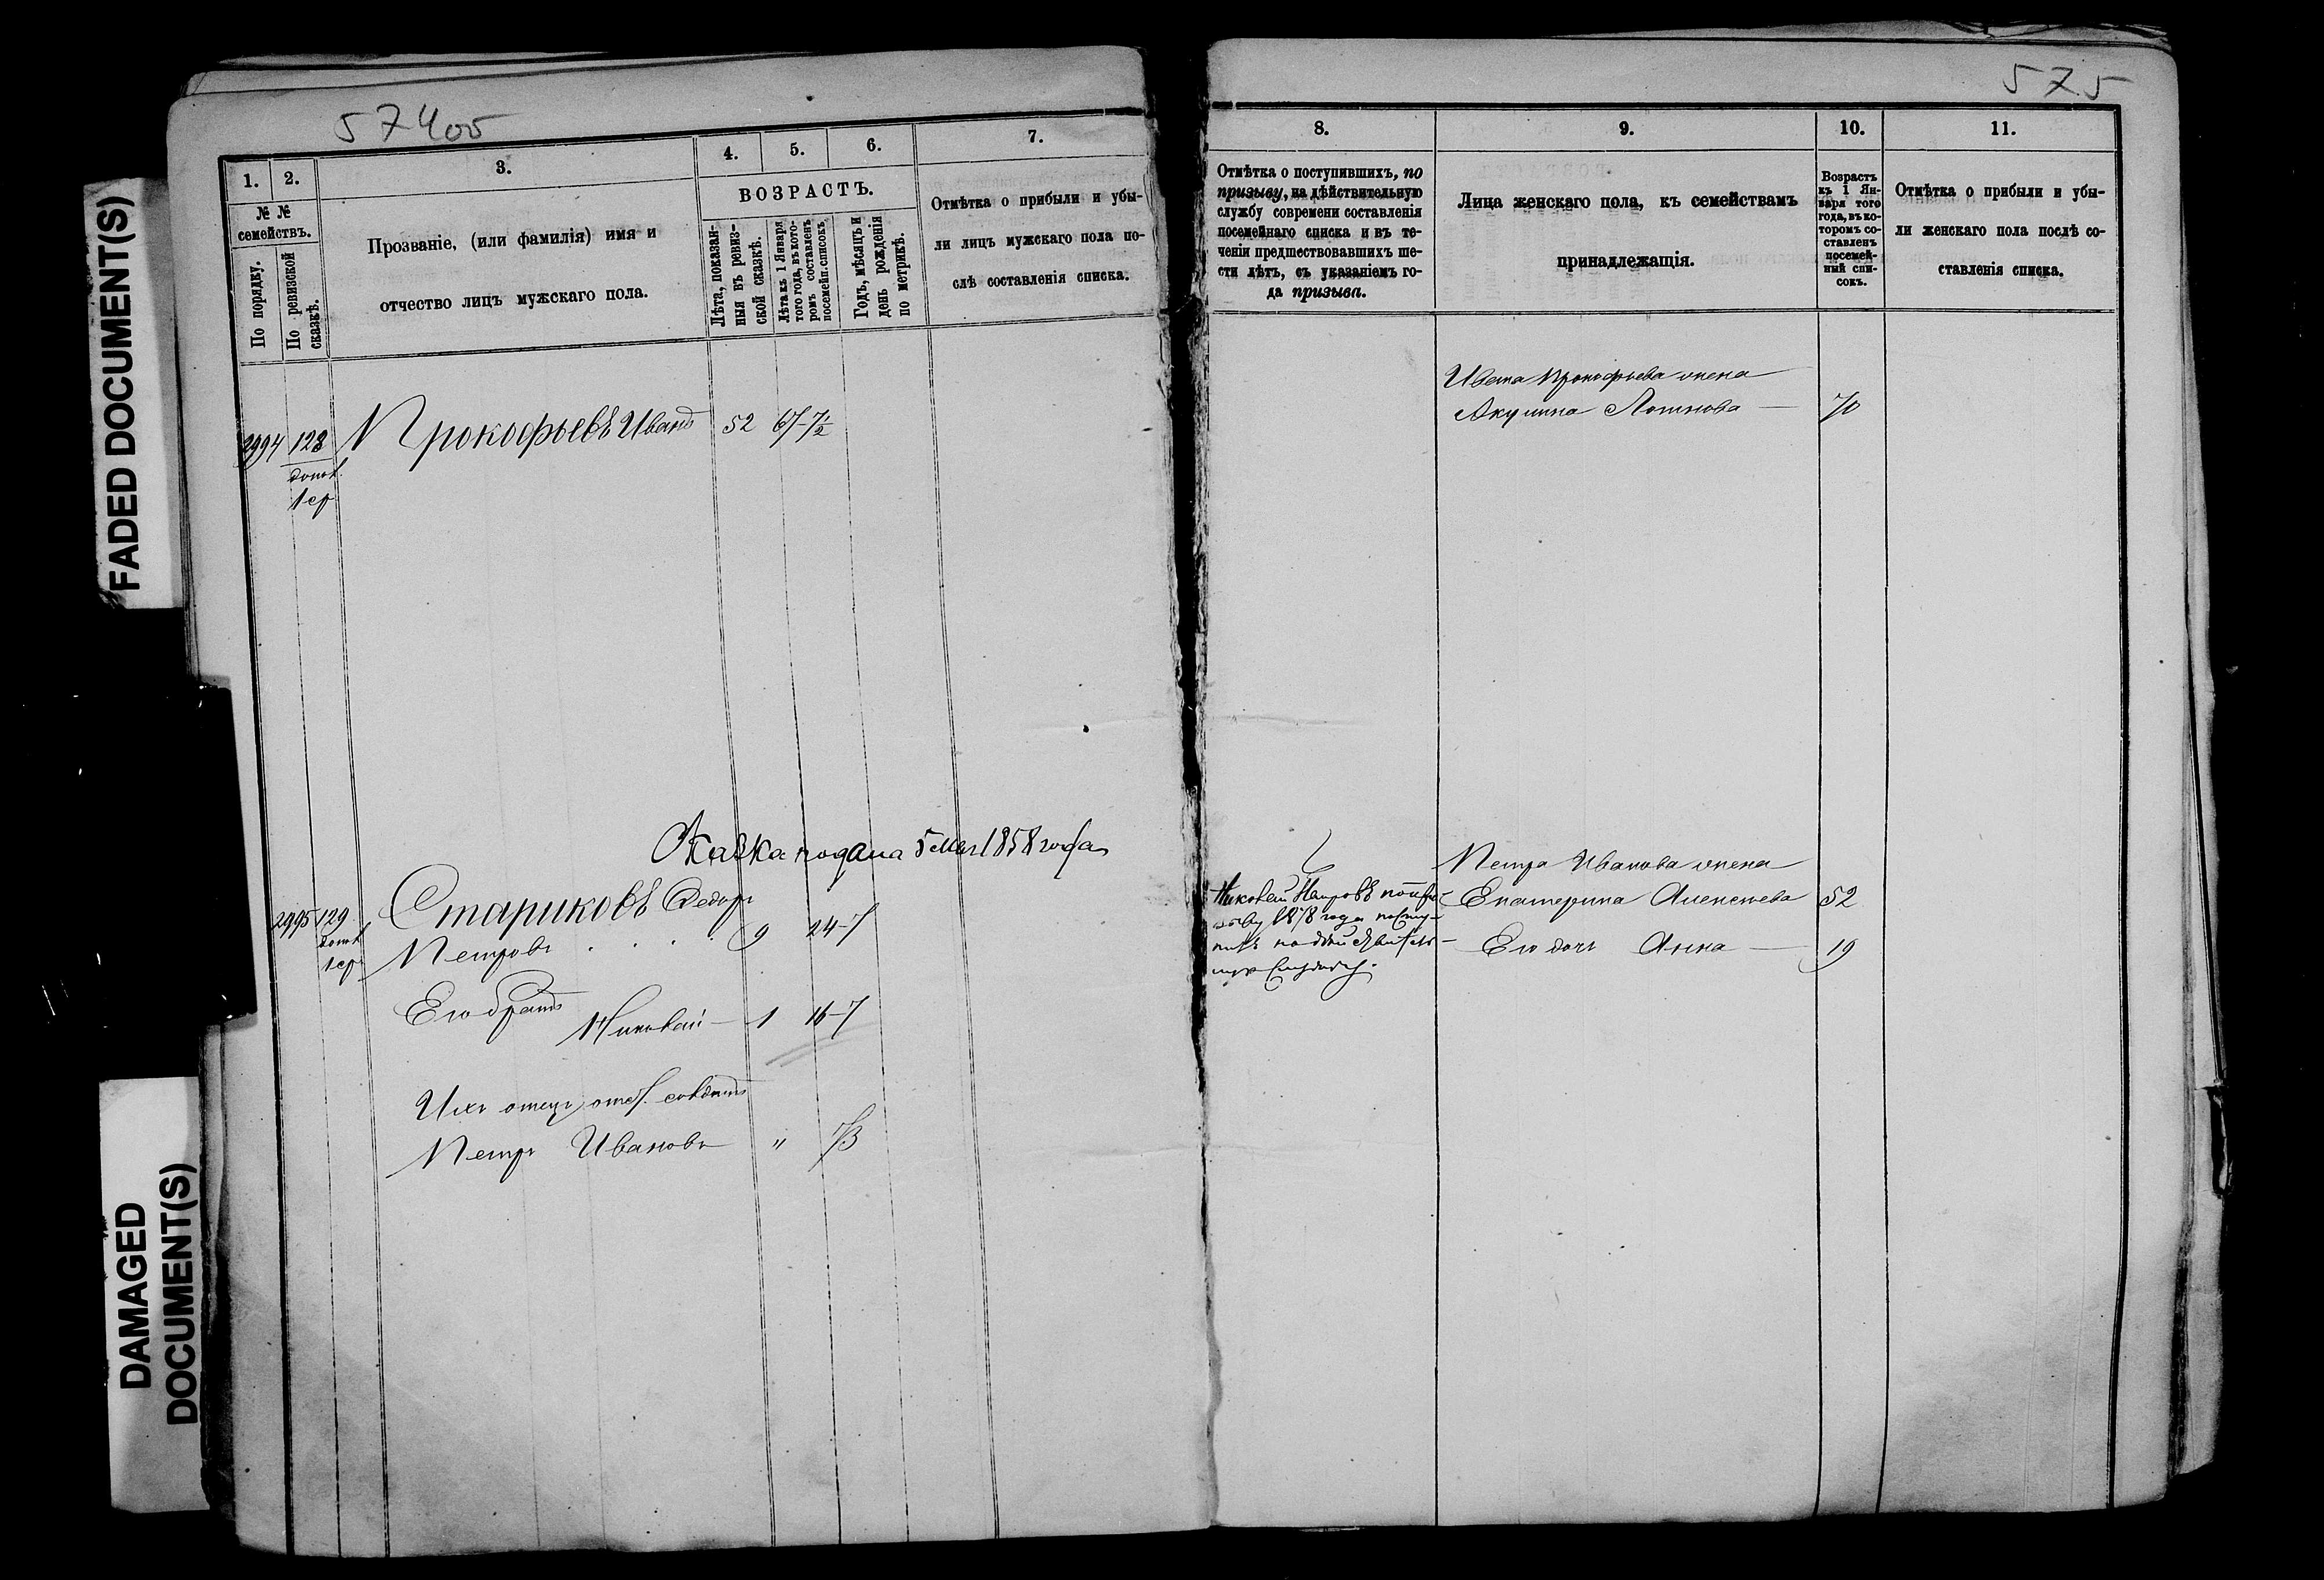 FADED DOCUMENT(S)
DAMAGED
DOCUMENT(S)
574об
1.
2.
3.
4.
5.
6.
7.
№ №
семействъ.
По порядку.
По ревизской
сказкѣ.
Прозваніе, (или фамилія) имя и
отчество лицъ мужскаго пола.
ВОЗРАСТЪ.
Лѣта, показан-
ныя въ ревиз-
ской сказкѣ.
Лѣта къ 1 Января
того года, въ кото-
ромъ составленъ
посемейн. списокъ.
Годъ, мѣсяцъ и
день рожденія
по метрикѣ.
Отмѣтка о прибыли и убы-
ли лицъ мужскаго пола по-
слѣ составленія списка.
2994 128 Прокофьевъ Иванъ 52 67-7½
допол.
1 ср
Сказка подана 5 Мая 1858 года
2995 129 Стариковъ Федоръ
допол
1 ср
Петровъ 9 24-7
Его братъ
Николай 1 16-7
Ихъ отецъ отст. солдатъ
Петръ Ивановъ " 73
575
8.
9.
10.
11.
Отмѣтка о поступившихъ, по
призыву, на дѣйствительную
службу современи составленія
посемейнаго списка и въ те-
ченіи предшествовавшихъ ше-
сти лѣтъ, съ указаніемъ го-
да призыва.
Лица женскаго пола, къ семействамъ
принадлежащія.
Возрастъ
къ 1 Ян-
варя того
года, въ ко-
торомъ со-
ставленъ
посемей-
ный спи-
сокъ.
Отмѣтка о прибыли и убы-
ли женскаго пола послѣ со-
ставленія списка.
Ивана Прокофьева жена
Акулина 70
Николай Петровъ по при-
зыву 1878 года посту-
пилъ на дѣйствитель-
ную службу.
Петра Иванова жена
Екатерина Алексѣева 52
Его дочь Анна 19